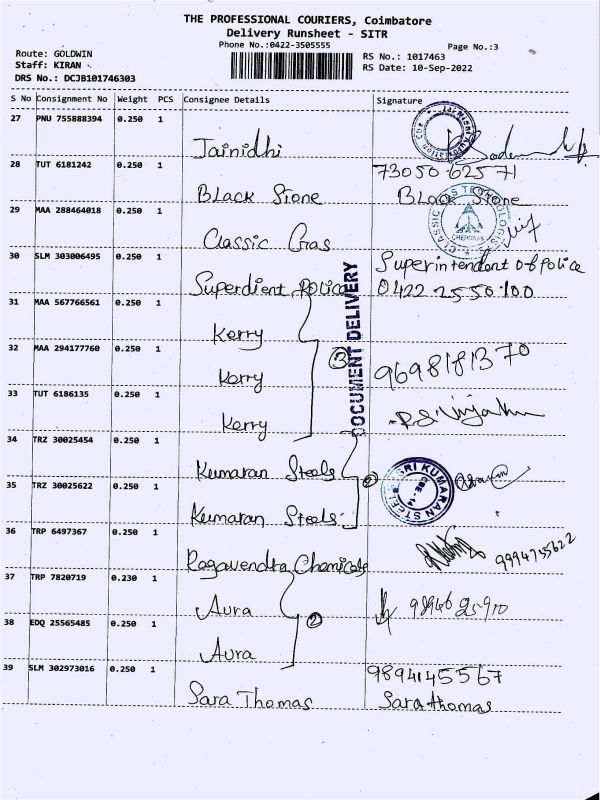 THE PROFESSIONAL COURIERS, Coimbatore
Delivery Runsheet - SITR
Phone No.:0422-3505555
Page No.:3
Route: GOLDWIN
Staff: KIRAN
DRS No.: DCJB101746303
RS No.: 1017463
RS Date: 10-Sep-2022
S No Consignment No Weight PCS Consignee Details Signature
27 PNU 755888394 0.250 1
Jainidhi
28 TUT 6181242 0.250 1
7305062571
Black Stone Black Stone
29 MAA 288464018 0.250 1
CLASSIC GAS TECHNOLOGIST
CHENNAI
Classic Gas
30 SLM 303006495 0.250 1
Superintendent of police
Superdient Police 0422 2550100
DOCUMENT DELIVERY
31 MAA 567766561 0.250 1
Kerry
32 MAA 294177760 0.250 1
3
Kerry 9698181370
33 TUT 6186135 0.250 1
Kerry
34 TRZ 30025454 0.250 1
Kumaran Steels
2
SRI KUMARAN STEELS
CBE-14
35 TRZ 30025622 0.250 1
Kumaran Steels
36 TRP 6497367 0.250 1
Ragavendra Chemicals 9994755622
37 TRP 7820719 0.230 1
Aura
2
38 EDQ 25565485 0.250 1
Aura
39 SLM 302973016 0.250 1
9894145567
Sara Thomas Sara thomas